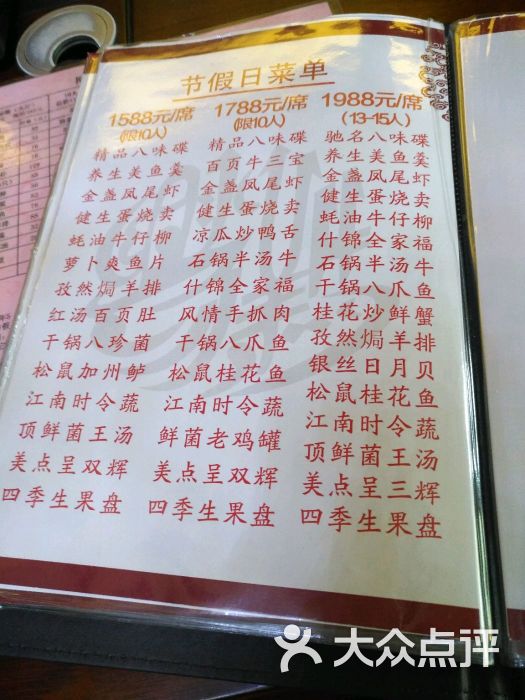 节假日菜单
1588元/席
(限10人)
精品八味碟
养生美鱼羹
金盏凤尾虾
健生蛋烧卖
蚝油牛仔柳
萝卜爽鱼片
孜然焗羊排
红汤百页肚
干锅八珍菌
松鼠加州鲈
江南时令蔬
顶鲜菌王汤
美点呈双辉
四季生果盘
1788元/席
(限10人)
精品八味碟
百页牛三宝
金盏凤尾虾
健生蛋烧卖
凉瓜炒鸭舌
石锅半汤牛
什锦全家福
风情手抓肉
干锅八爪鱼
松鼠桂花鱼
江南时令蔬
鲜菌老鸡罐
美点呈双辉
四季生果盘
1988元/席
(13-15人)
驰名八味碟
养生美鱼羹
金盏凤尾虾
健生蛋烧卖
蚝油牛仔柳
什锦全家福
石锅半汤牛
干锅八爪鱼
桂花炒鲜蟹
孜然焗羊排
银丝日月贝
松鼠桂花鱼
江南时令蔬
顶鲜菌王汤
美点呈三辉
四季生果盘
大众点评